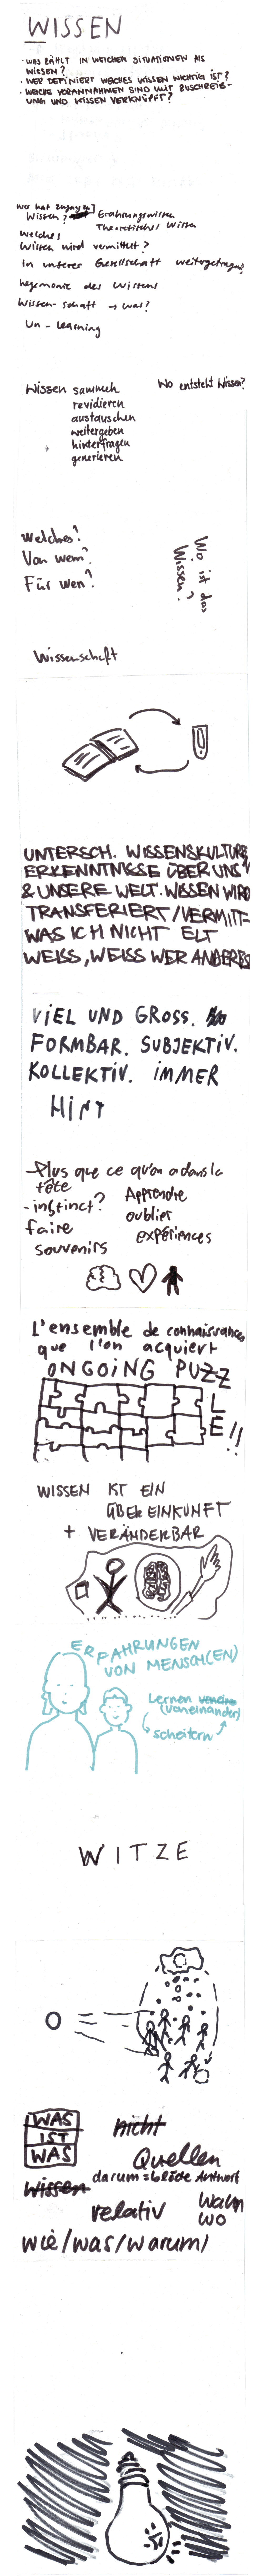 WISSEN
- WAS ZÄHLT IN WELCHEN SITUATIONEN ALS
WISSEN?
- WER DEFINIERT WELCHES WISSEN WICHTIG IST?
- WELCHE VORANNAHMEN SIND MIT ZUSCHREIB-
UNG UND WISSEN VERKNÜPFT?
wer hat Zugang zu
Wissen? Erfahrungswissen
Theoretisches Wissen
Welches
Wissen wird vermittelt?
In unserer Gesellschaft weitergetragen?
hegemonie des Wissens
Wissen-schaft → was?
Un-learning
Wissen sammeln
revidieren
austauschen
weitergeben
hinterfragen
generieren
Wo entsteht Wissen?
Welches?
Von wem?
Für wen?
Wo ist das
Wissen?
Wissenschaft
UNTERSCH. WISSENSKULTUREN
ERKENNTNISSE ÜBER UNS
& UNSERE WELT. WISSEN WIRD
TRANSFERIERT/VERMITT-
ELT
WAS ICH NICHT
WEISS, WEISS WER ANDERES
VIEL UND GROSS.
FORMBAR. SUBJEKTIV.
KOLLEKTIV. IMMER
-Plus que ce qu'on a dans la
tête
- instinct?
faire
souvenirs
Apprendre
oublier
expériences
L'ensemble de connaissances
que l'on acquiert
ONGOING PUZZLE!!
WISSEN IST EIN
ÜBEREINKUNFT
+ VERÄNDERBAR
ERFAHRUNGEN
VON MENSCH(EN)
Lernen
(voneinander)
scheitern
WITZE
WAS
IST
WAS
nicht
Quellen
darum = blöde Antwort
Wissen
relativ
Wann
WO
wie/was/warum/